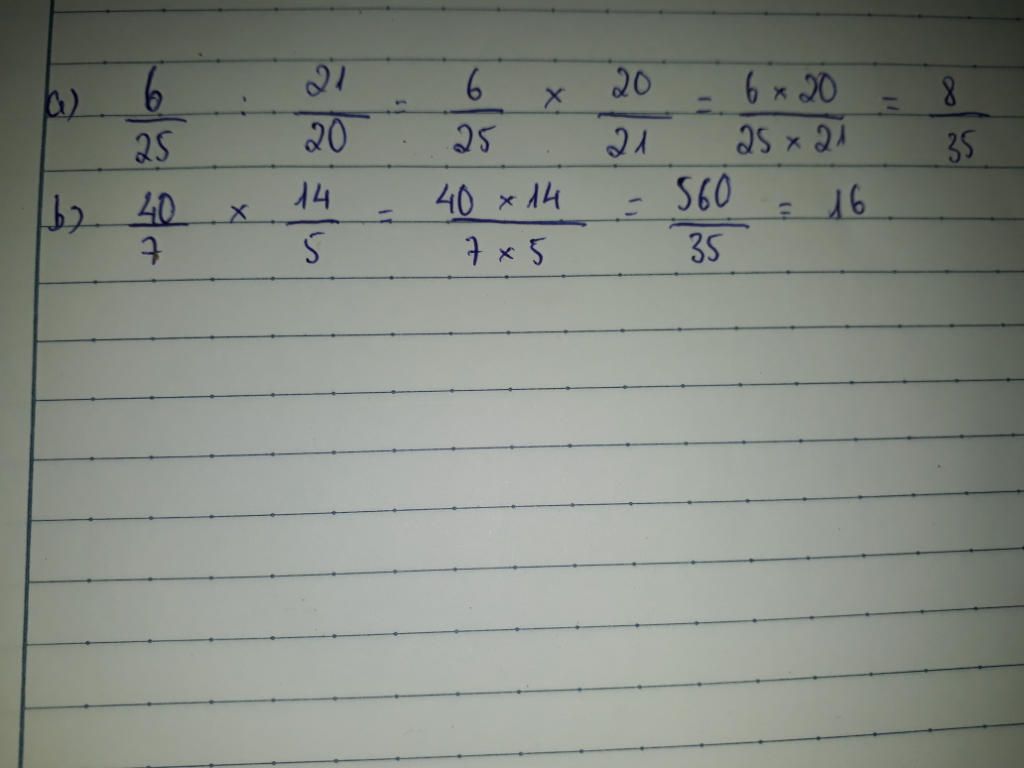 a) 6/25 : 21/20 = 6/25 × 20/21 = 6 × 20/25 × 21 = 8/35
b) 40/7 × 14/5 = 40 × 14/7 × 5 = 560/35 = 16